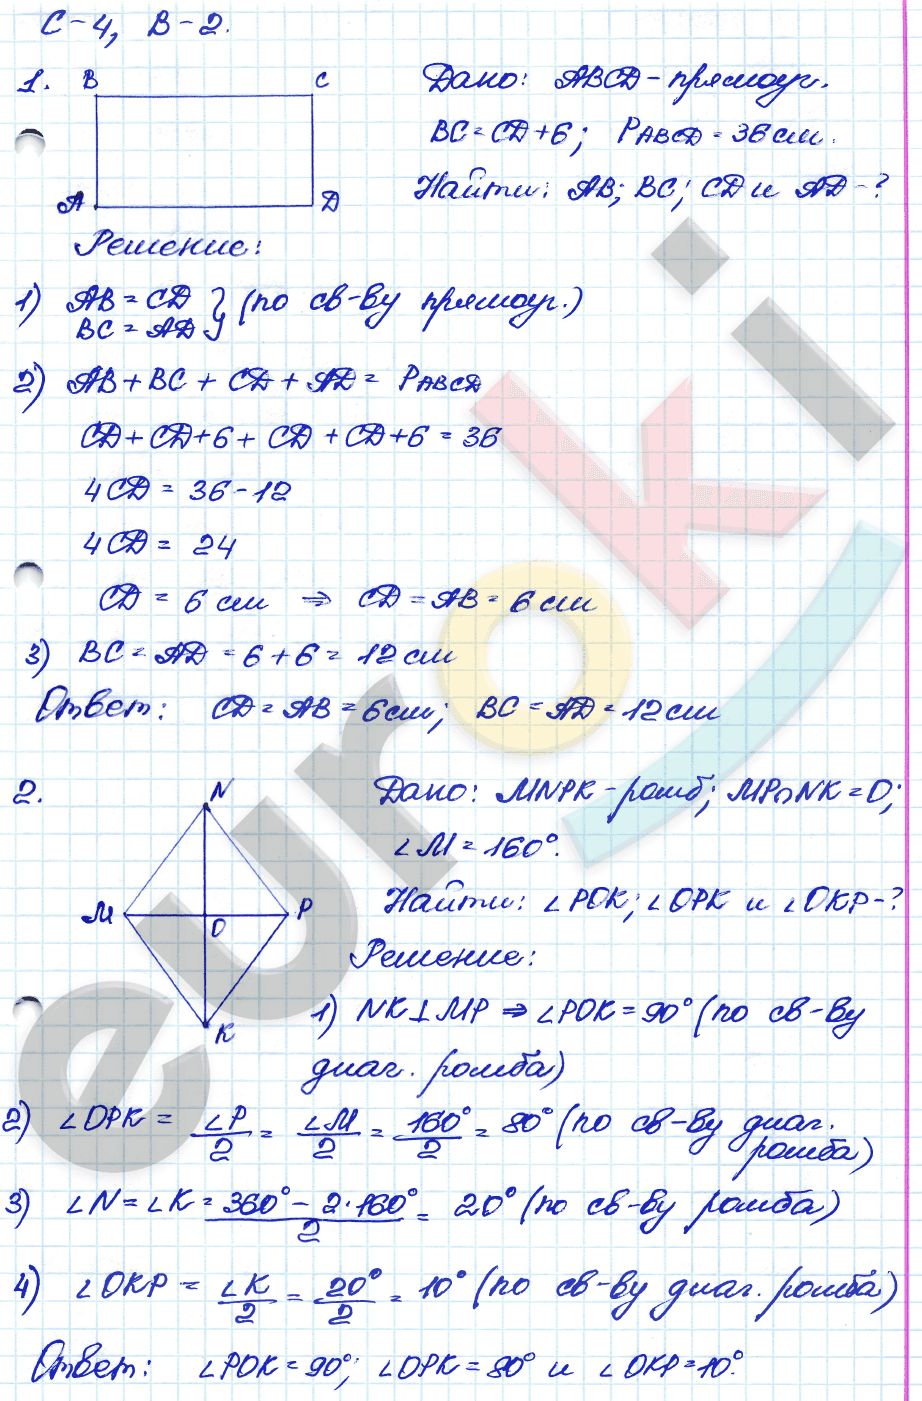 С-4, В-2.
1. B C
A D
Дано: ABCD - прямоуг.
BC = CD + 6; PABCD = 36 см.
Найти: AB; BC; CD и AD - ?
Решение:
1) AB = CD
BC = AD } (по св-ву прямоуг.)
2) AB + BC + CD + AD = PABCD
CD + CD + 6 + CD + CD + 6 = 36
4CD = 36 - 12
4CD = 24
CD = 6 см ⇒ CD = AB = 6 см
3) BC = AD = 6 + 6 = 12 см
Ответ: CD = AB = 6 см; BC = AD = 12 см
2. N
M O P
K
Дано: MNPK - ромб; MP∩NK = O;
∠M = 160°.
Найти: ∠POK; ∠OPK и ∠OKP - ?
Решение:
1) NK ⊥ MP ⇒ ∠POK = 90° (по св-ву
диаг. ромба)
2) ∠OPK = ∠P/2 = ∠M/2 = 160°/2 = 80° (по св-ву диаг.
ромба)
3) ∠N = ∠K = (360° - 2·160°)/2 = 20° (по св-ву ромба)
4) ∠OKP = ∠K/2 = 20°/2 = 10° (по св-ву диаг. ромба)
Ответ: ∠POK = 90°; ∠OPK = 80° и ∠OKP = 10°.
euroki